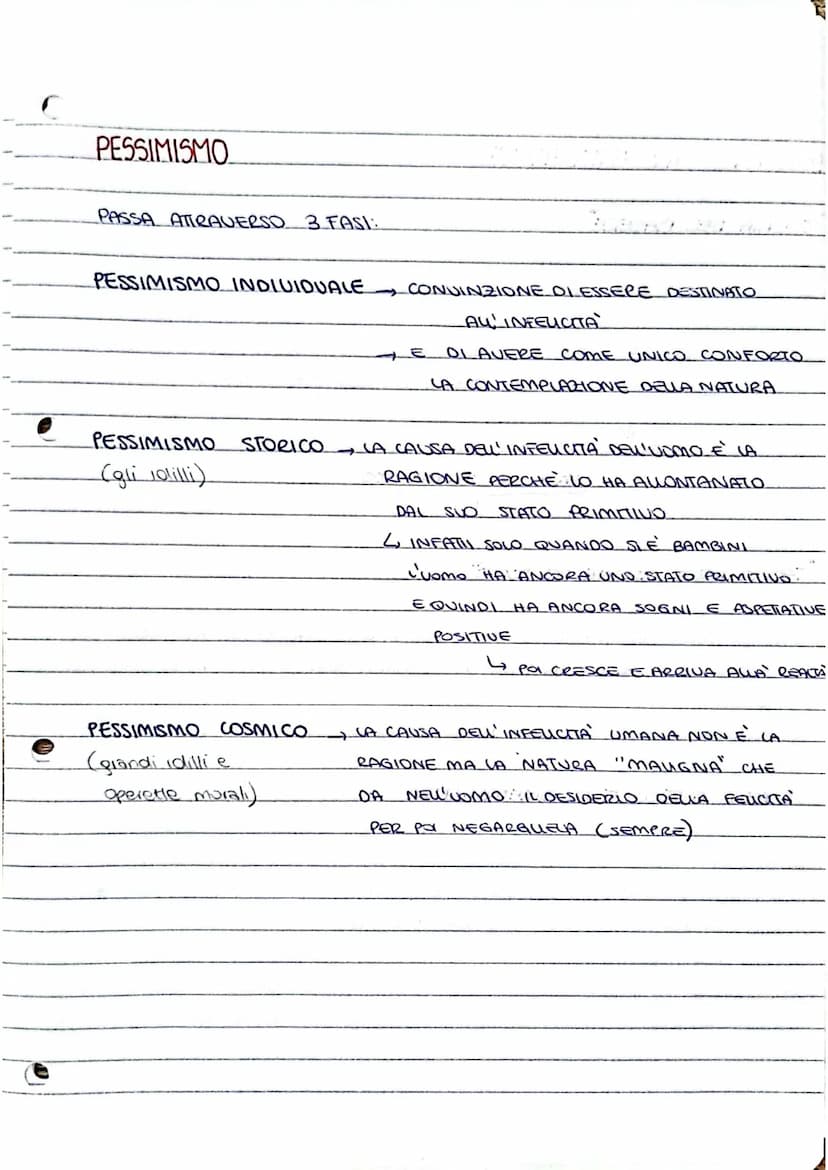 PESSIMISMO
PASSA ATTRAVERSO 3 FASI:
PESSIMISMO INDIVIDUALE → CONVINZIONE DI ESSERE DESTINATO
ALL'INFELICITÀ
→ E DI AVERE COME UNICO CONFORTO
LA CONTEMPLAZIONE DELLA NATURA
PESSIMISMO STORICO → LA CAUSA DELL'INFELICITÀ DELL'UOMO È LA
(gli idilli) RAGIONE PERCHÈ LO HA ALLONTANATO
DAL SUO STATO PRIMITIVO
↳ INFATTI SOLO QUANDO SI È BAMBINI
L'UOMO HA ANCORA UNO STATO PRIMITIVO
E QUINDI HA ANCORA SOGNI E ASPETTATIVE
POSITIVE
↳ POI CRESCE E ARRIVA ALLA REALTÀ
PESSIMISMO COSMICO → LA CAUSA DELL'INFELICITÀ UMANA NON È LA
(grandi idilli e RAGIONE MA LA NATURA "MALIGNA" CHE
operette morali) DA NELL'UOMO IL DESIDERIO DELLA FELICITÀ
PER POI NEGARGLIELA (SEMPRE)